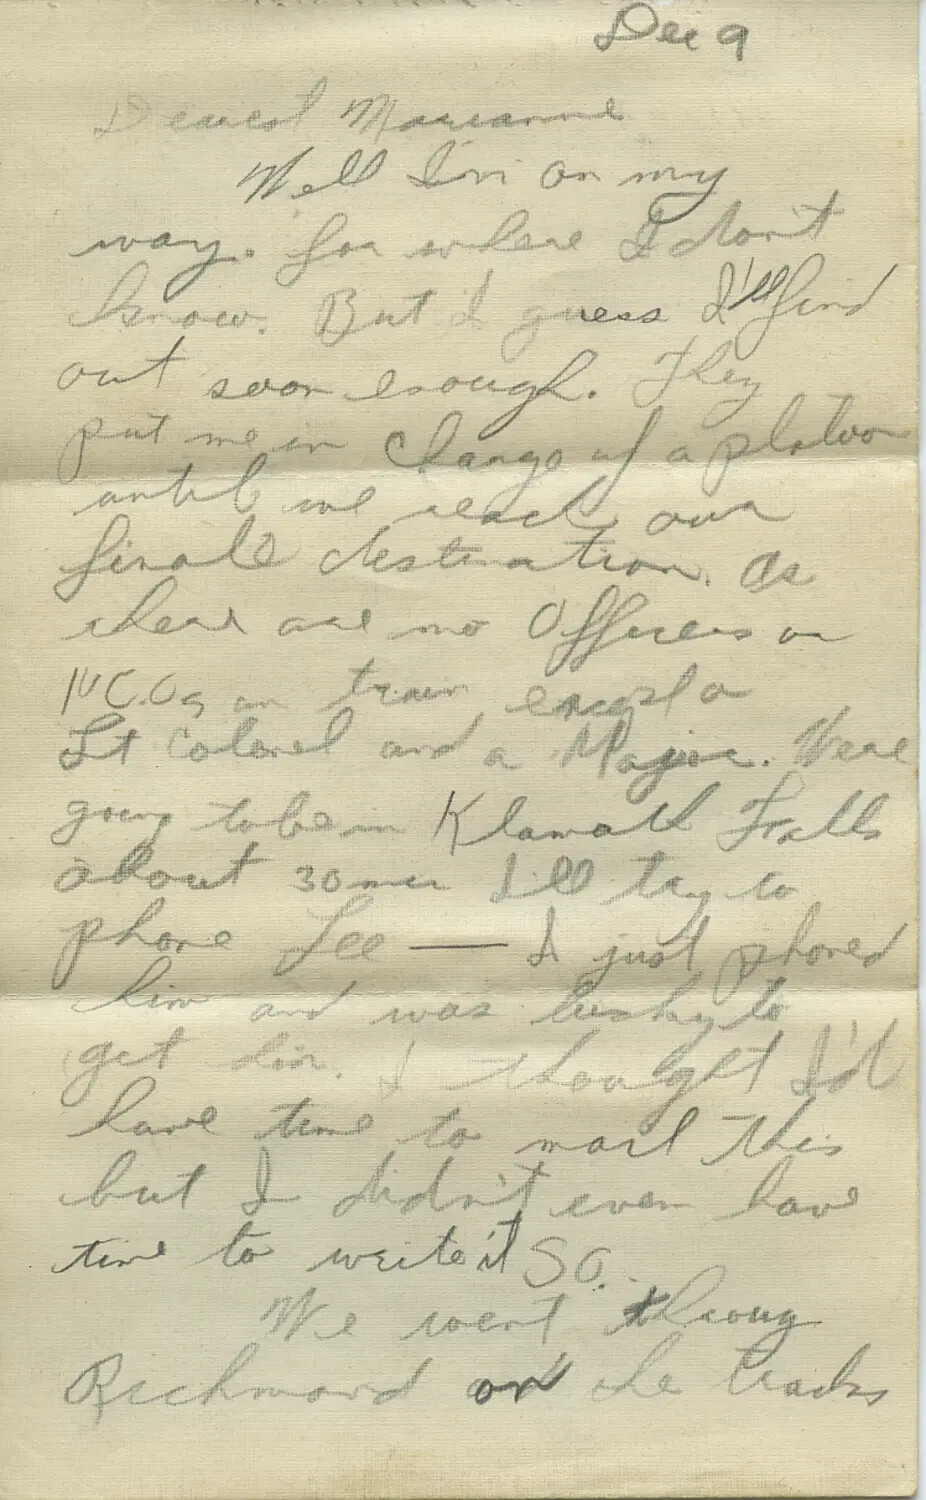 Dec 9
Dearest Marianne
Well I'm on my
way. for where I don't
know. But I guess I'll find
out soon enough. They
put me in charge of a platoon
until we reach our
finale destination. As
there are no Officers or
N.C.Os on train except a
Lt Colonel and a Major. Were
going to be in Klamath Falls
about 30 min I'll try to
phone Lee — I just phoned
him and was lucky to
get him. I thought I'd
have time to mail this
but I didn't even have
time to write it SO.
We went throug
Richmond on the tracks